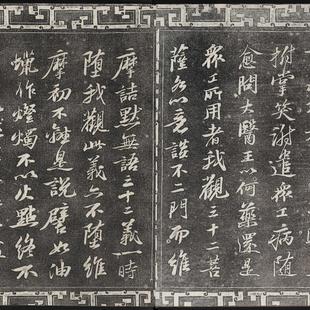 拊掌笑謝遣衆工病隨
愈問大醫王以何藥還是
衆工所用者我觀三十二菩
薩各以意談不二門而維
摩詰默無語三十二義一時
墮我觀此義亦不墮維
摩初不離是說譬如油
蠟作燈燭不以火點終不